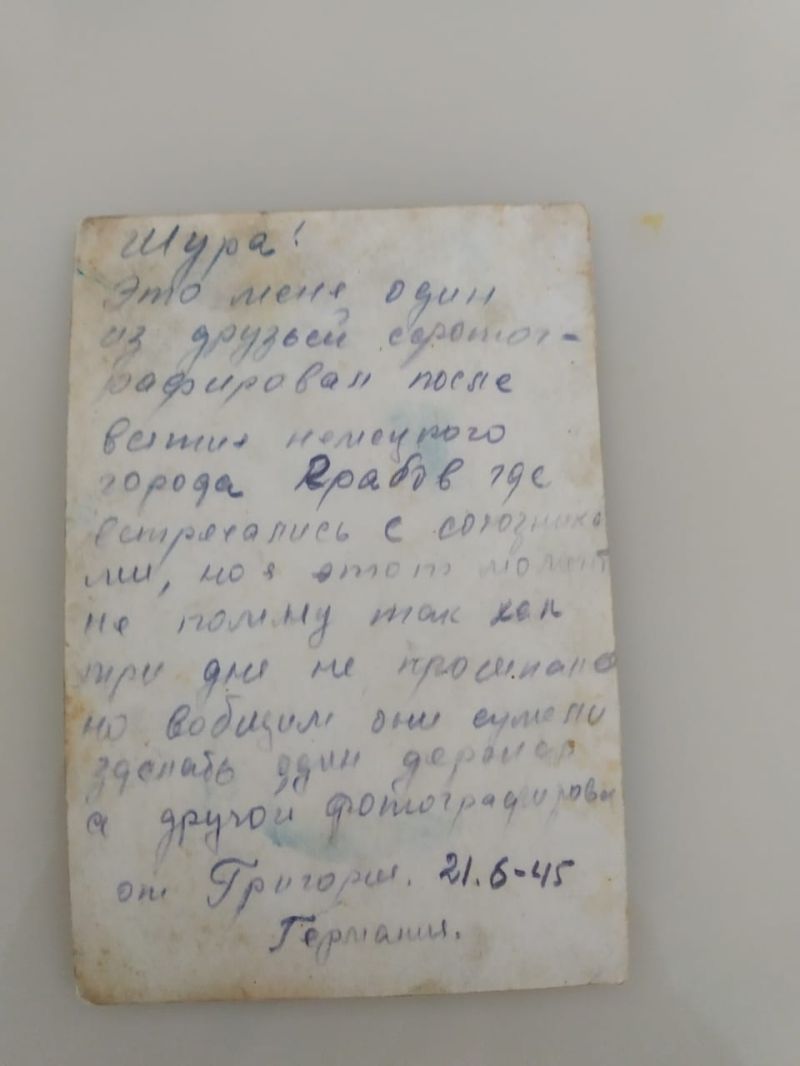 Шура!
Это меня один
из друзьей сфотог-
рафировал после
взятия немецкого
города Грабов где
встречались с союзника
ми, но я этот момент
не помню так как
три дни не просыпано
но вобщим они сумели
зделать один держал
а другой фотографирова
от Григория. 21.6-45
Германия.